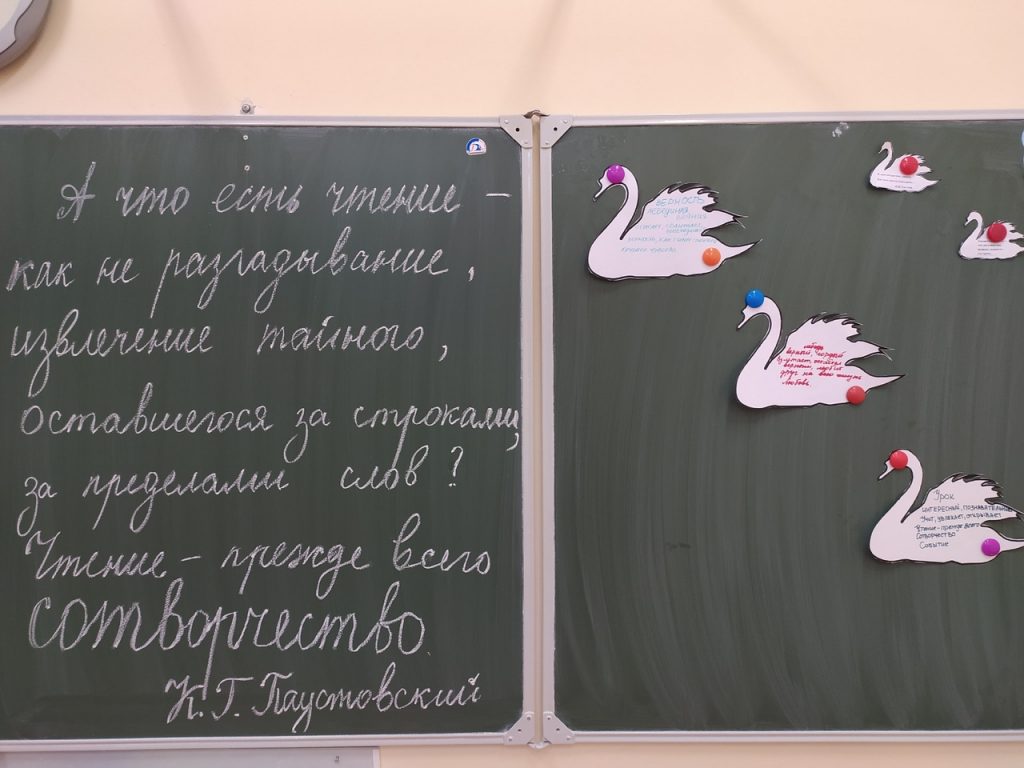 А что есть чтение –
как не разгадывание,
извлечение тайного,
оставшегося за строками,
за пределами слов?
Чтение – прежде всего
сотворчество
К.Г. Паустовский
Верность
лебедь
верный, гордый
друг на всю жизнь
любовь
Урок
интересный, познавательный
учит, увлекает, открывает
Чтение – прежде всего
сотворчество
Событие